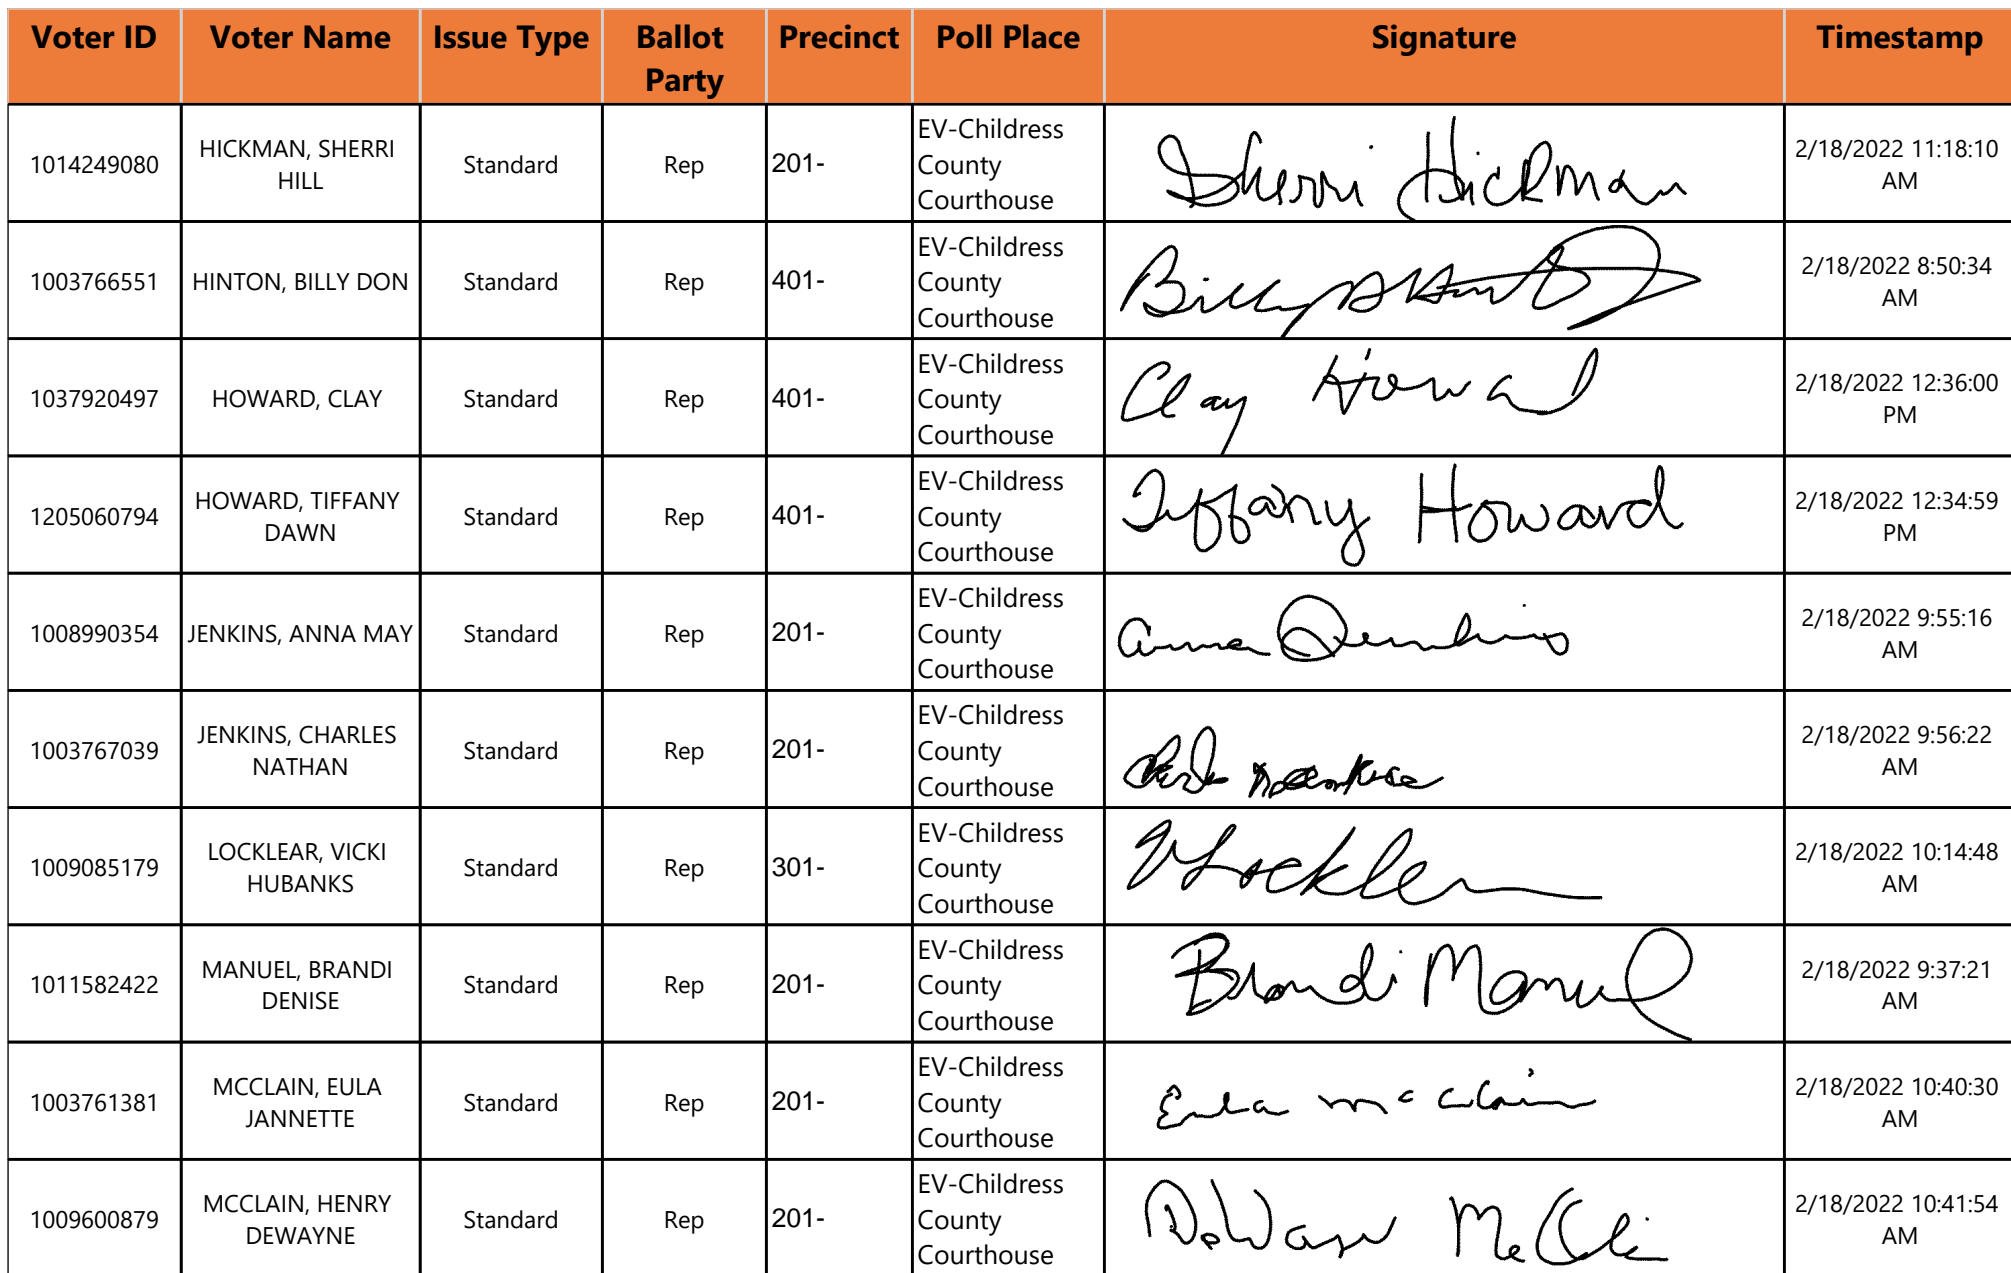 Voter ID Voter Name Issue Type Ballot Party Precinct Poll Place Signature Timestamp
1014249080 HICKMAN, SHERRI HILL Standard Rep 201- EV-Childress County Courthouse Sherri Hickman 2/18/2022 11:18:10 AM
1003766551 HINTON, BILLY DON Standard Rep 401- EV-Childress County Courthouse Billy D Hinton 2/18/2022 8:50:34 AM
1037920497 HOWARD, CLAY Standard Rep 401- EV-Childress County Courthouse Clay Howard 2/18/2022 12:36:00 PM
1205060794 HOWARD, TIFFANY DAWN Standard Rep 401- EV-Childress County Courthouse Tiffany Howard 2/18/2022 12:34:59 PM
1008990354 JENKINS, ANNA MAY Standard Rep 201- EV-Childress County Courthouse Anna Jenkins 2/18/2022 9:55:16 AM
1003767039 JENKINS, CHARLES NATHAN Standard Rep 201- EV-Childress County Courthouse 2/18/2022 9:56:22 AM
1009085179 LOCKLEAR, VICKI HUBANKS Standard Rep 301- EV-Childress County Courthouse V Locklear 2/18/2022 10:14:48 AM
1011582422 MANUEL, BRANDI DENISE Standard Rep 201- EV-Childress County Courthouse Brandi Manuel 2/18/2022 9:37:21 AM
1003761381 MCCLAIN, EULA JANNETTE Standard Rep 201- EV-Childress County Courthouse Eula McClain 2/18/2022 10:40:30 AM
1009600879 MCCLAIN, HENRY DEWAYNE Standard Rep 201- EV-Childress County Courthouse DeWayne McClain 2/18/2022 10:41:54 AM